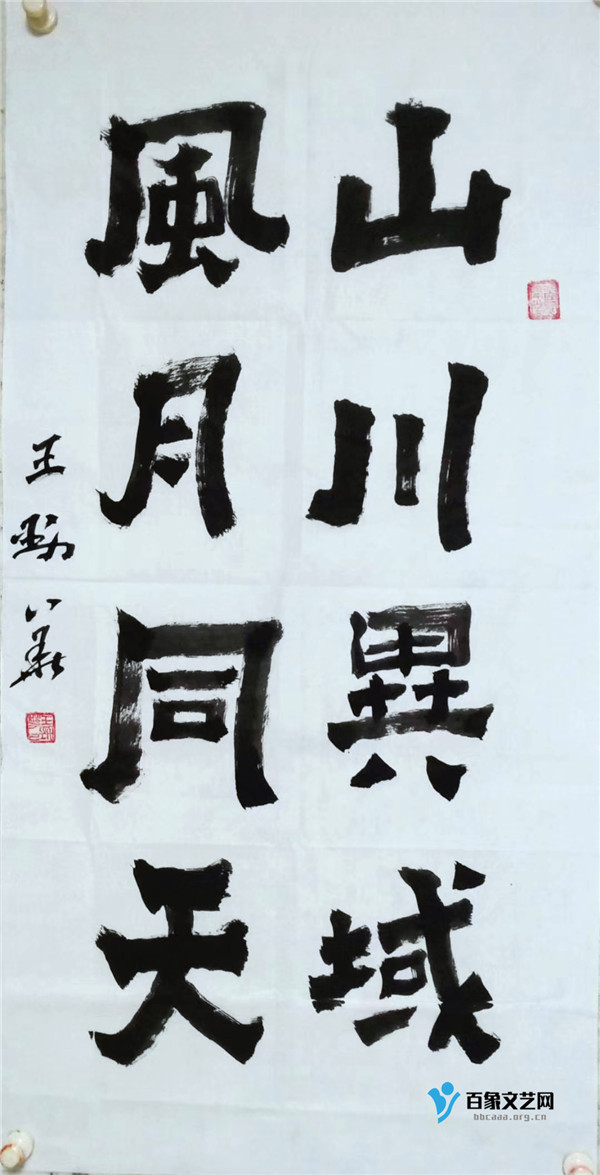 山川異域
風月同天
王
百象文艺网
bbcaaa.org.cn